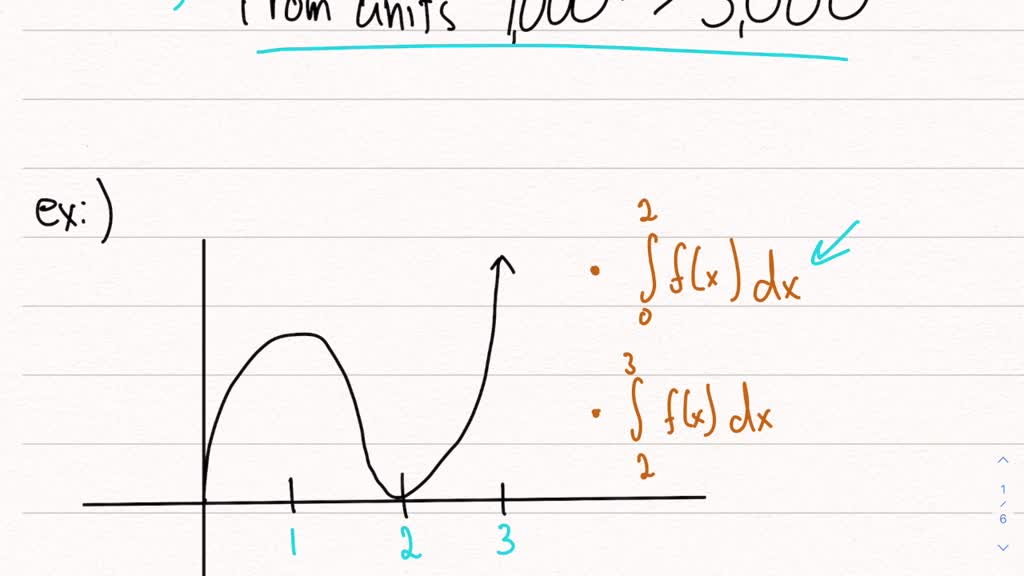 From units 1,000 -> 5,000
ex:)
2
• ∫ f(x) dx
0
3
• ∫ f(x) dx
2
1 2 3
1
/
6